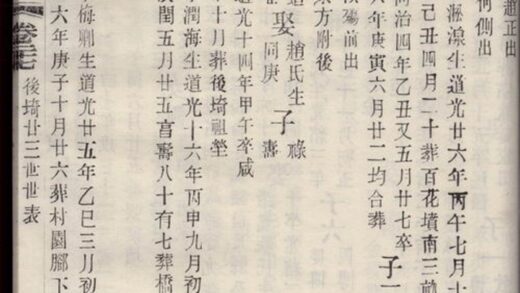 趙正出
何側出
生道光廿六年丙午七月十
己丑四月二十葬百花墳南三畝
同治四年乙丑又五月廿七卒 子一
六年庚寅六月廿二均合葬
殤前出
東方附後
娶 趙氏生同庚 子 祿壽
道光十四年甲午卒咸
十月葬後埼祖塋
潤海生道光十六年丙申九月初
閏五月廿五亯壽八十有七葬橋
生道光廿五年乙巳三月初
六年庚子十月廿六葬村園腳下
後埼廿三世世表